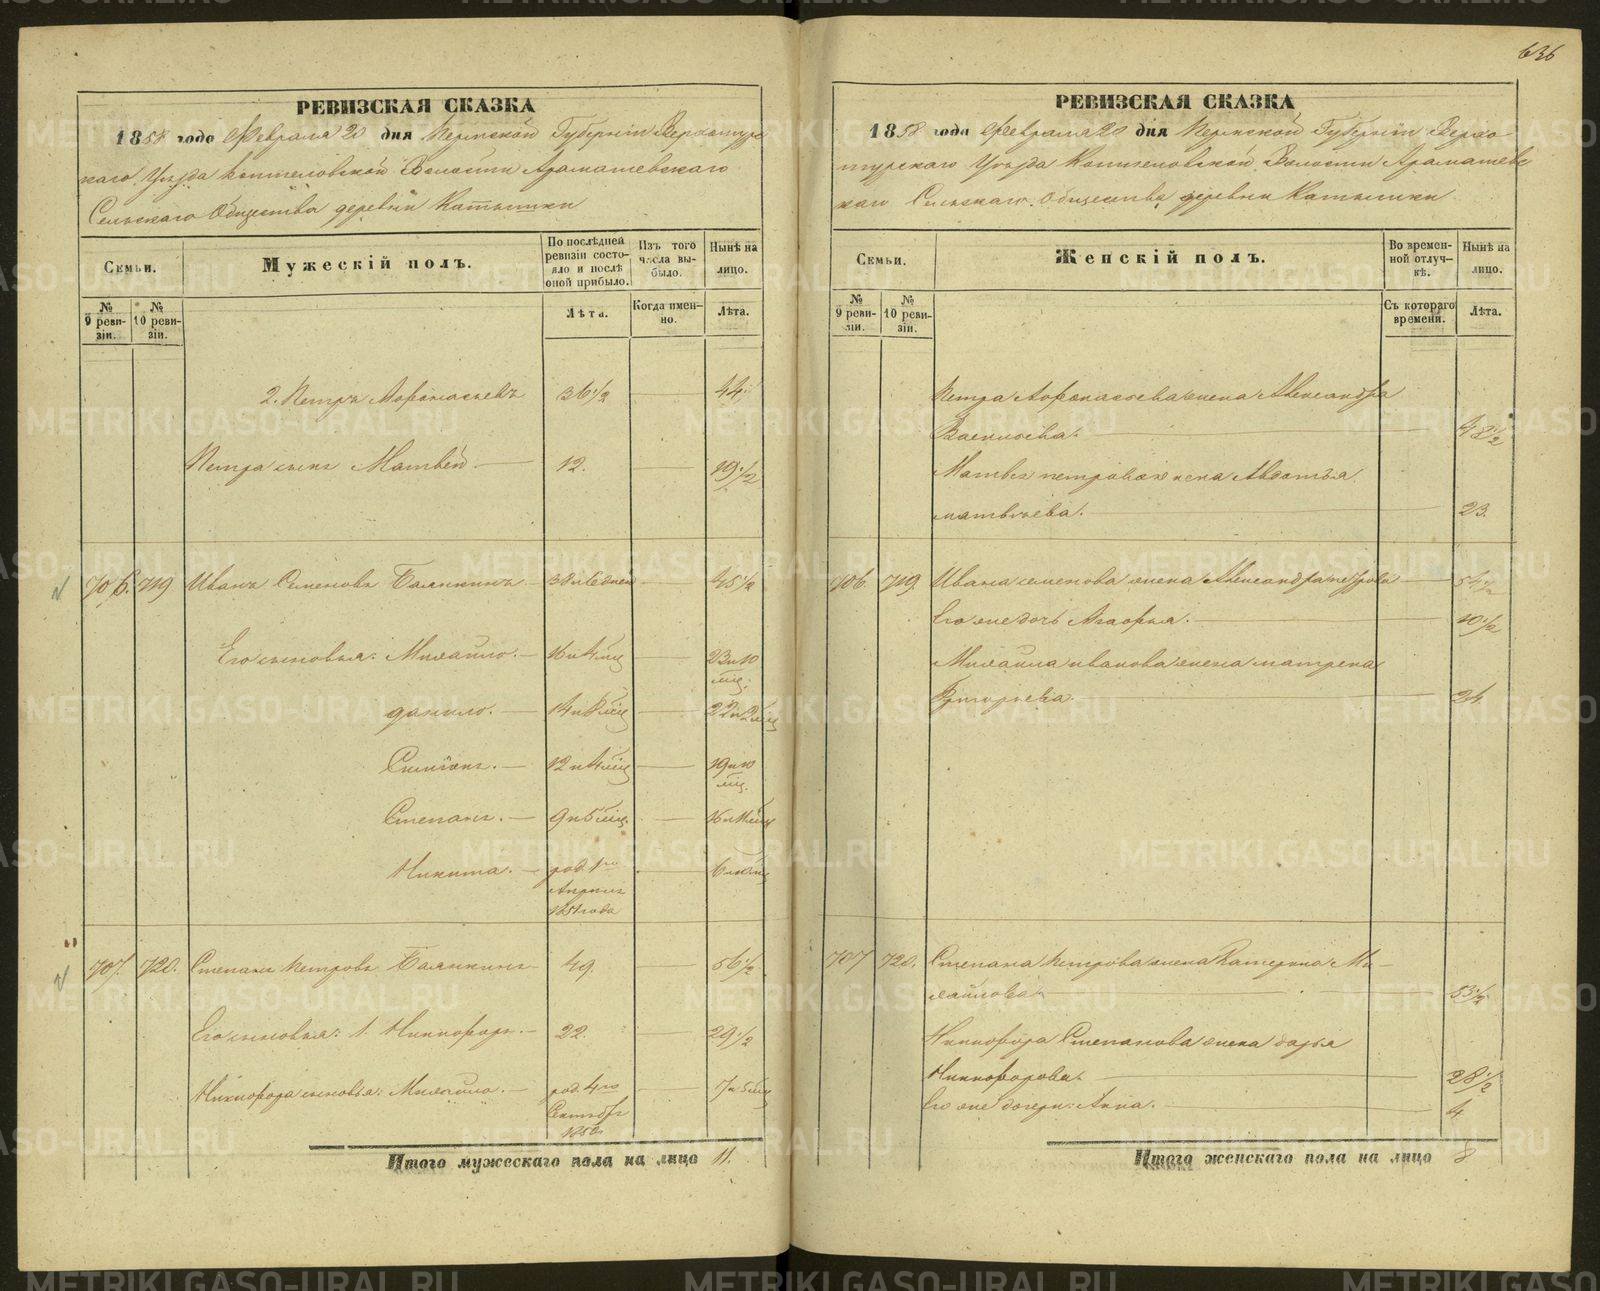 636
РЕВИЗСКАЯ СКАЗКА
1858 года Февраля 20 дня Пермской Губерніи Верхотурс
каго Уѣзда Коптеловской Волости Арамашевскаго
Сельскаго Общества деревни Катышки
Семьи.
Мужескій полъ.
По послѣдней ревизіи состояло и послѣ оной прибыло.
Изъ того числа выбыло.
Нынѣ на лицо.
№ 9 ревизіи.
№ 10 ревизіи.
Лѣта.
Когда именно.
Лѣта.
2. Петръ Афонасьевъ 36 1/2 — 44.
Петра сынъ Матвей — 12. — 19 1/2
706. 719 Иванъ Семеновъ Балякинъ — 38 и 6 дней — 45 1/2
Его сыновья: Михайло. — 16 и 4 мц — 23 и 10 мц.
данило. — 14 и 8 мц — 22 и 2 мц
— 12 и 4 мц — 19 и 10 мц.
Степанъ. — 9 и 5 мц. — 16 и 11 мц
Никита. — род. 1го Апреля 1851 года — 6 и мц
707. 720. Степанъ Петровъ Балякинъ 49. — 56 1/2
Его сыновья: 1. Никифоръ. — 22. — 29 1/2
Никифора сыновья: Михайло. — род. 4го Сентябр 1850 — 7 и 5 мц
Итого мужескаго пола на лицо 11.
РЕВИЗСКАЯ СКАЗКА
1858 года Февраля 20 дня Пермской Губерніи Верхо
турскаго Уѣзда Коптеловской Волости Арамашевс
каго Сельскаго Общества деревни Катышки
Семьи.
Женскій полъ.
Во временной отлучкѣ.
Нынѣ на лицо.
№ 9 ревизіи.
№ 10 ревизіи.
Съ котораго времени.
Лѣта.
Петра Афонасьева жена Александра
Васильева. — 48 1/2
Матвея петрова жена Авдотья
матвѣева. — 23.
706. 719. Ивана семенова жена Александра петрова — 54 1/2
Его же дочь — 10 1/2
Михайла иванова жена матрена
Григорьева. — 24.
707 720. Степана петрова жена Катерина Ми-
хайлова — 53 1/2
Никифора Степанова жена дарья
Никифорова. — 28 1/2
Его же дочери: Анна. — 4
Итого женскаго пола на лицо 8
METRIKI.GASO-URAL.RU